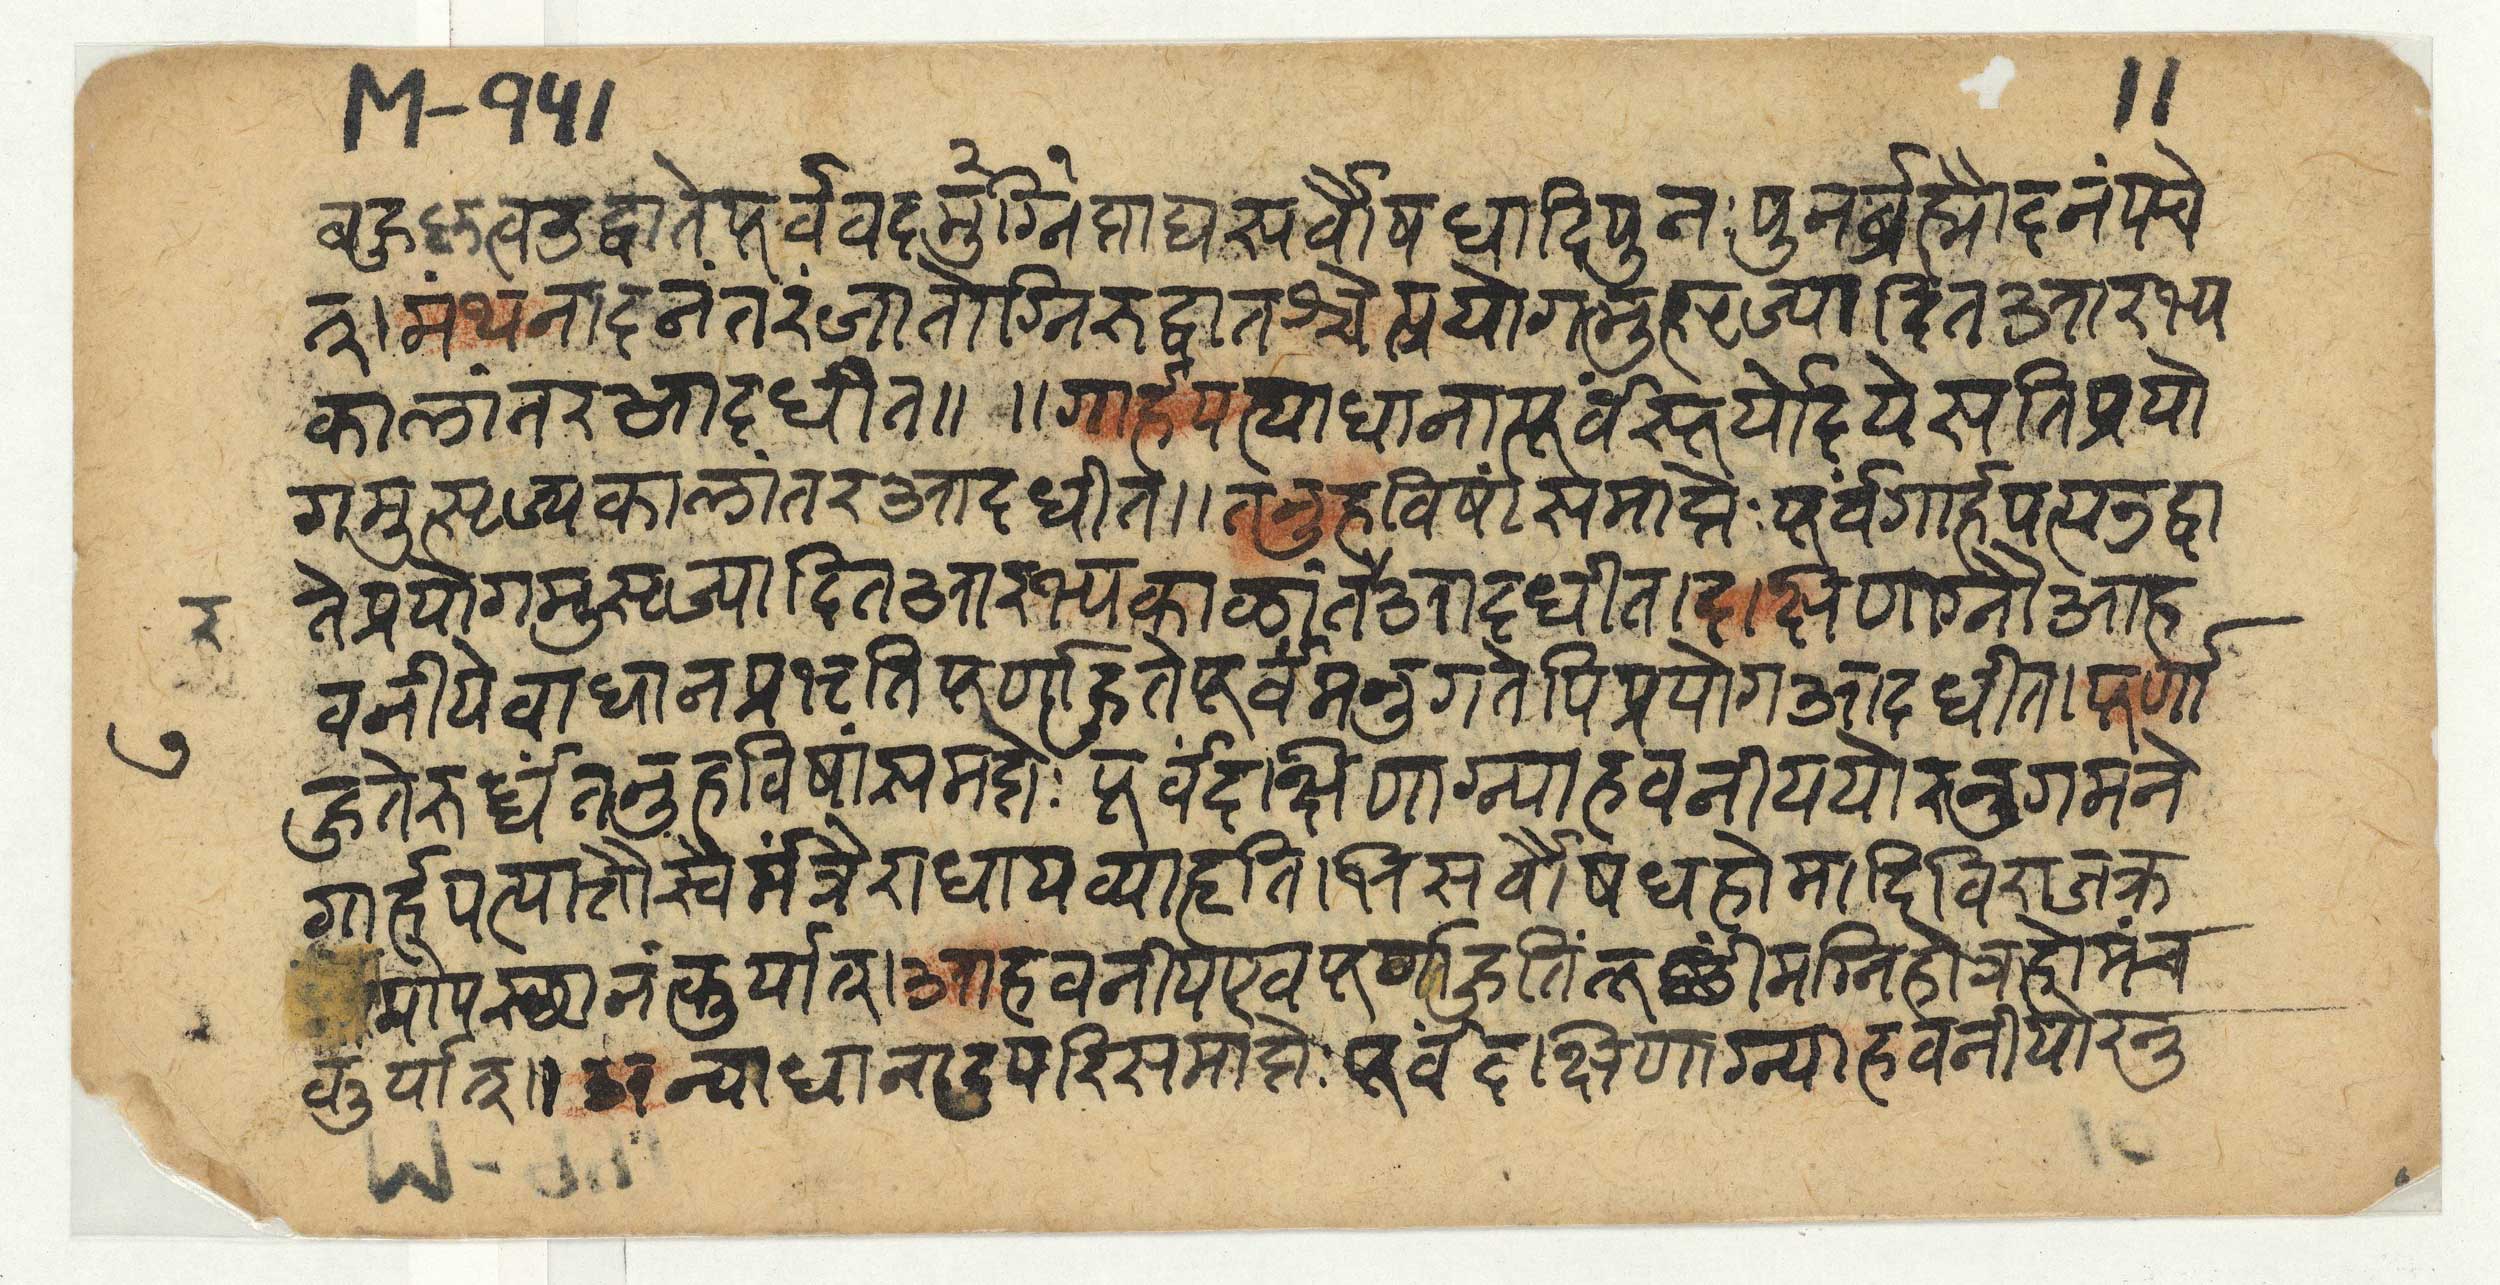 M-१५१ 11
२ १
बहुकृत्वउद्वाते पूर्ववदमुग्निं माघ सर्वौषधादि पुनः पुनर्ब्रह्मौदनं पचे
त् । मंथनादनंतरं जातोग्निरुद्वातश्चेत्प्रयोगमुत्सृज्यादित आरभ्य
कालांतर आदधीत ॥ ॥ गार्हपत्याधानात्पूर्वं सूर्योदये सति प्रयो
गमुत्सृज्य कालांतर आदधीत ॥ तनुहविषां समाप्तेः पूर्वं गार्हपत्यउद्वा
ते प्रयोगमुसृज्यादित आरभ्य काळांतरे आदधीत । दाक्षिणाग्नौ आह
र
वनीये वाधानप्रभृति पूर्णाहुतेः पूर्वमनुगतेपि प्रयोग आदधीत । पूर्णा
हुतेरुर्ध्वं तनुहविषां समाप्तेः पूर्वं दाक्षिणाग्न्याहवनीययोरनुगमने
गार्हपत्यात्तौ स्वैर्मंत्रैराधाय व्याहृतिभि सर्वौषधहोमादि विराजक्र
मोपस्छानं कुर्यात् । आहवनीय एव पूर्णाहुतिं तूष्णीमग्निहोत्रहोमं च
कुर्यात् ॥ अन्याधानादुपरि समाप्तेः पूर्वं दाक्षिणाग्न्याहवनीयोरनु